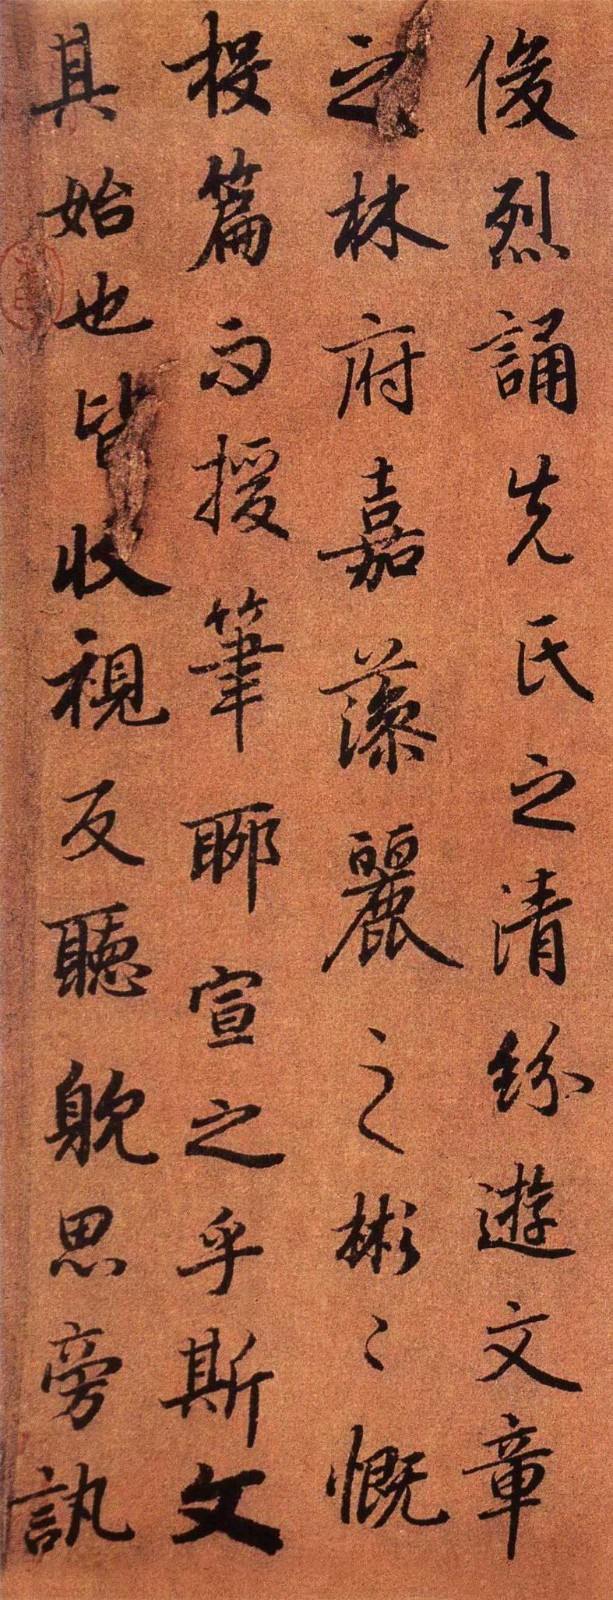 俊烈誦先氏之清紛遊文章
之林府嘉藻麗之彬〻慨
投篇而援筆聊宣之乎斯文
其始也皆收視反聽躭思旁訊